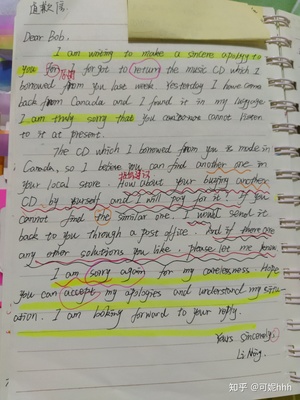 道歉信
Dear Bob.
I am writing to make a sincere apology to
you for I forgot to return the music CD which I
borrowed from you last week. Yesterday I have come
back from Canada and I found it in my luguage
I am truly sorry that you can not listen
to it at present.
The CD which I borrowed from you is made in
Canada, so I believe you can find another one in
your local store. How about your buying another
CD by yourself and I will pay for it? If you
cannot find the similar one. I will send it
back to you through a post office. And if there are
any other solutions you like, please let me know
I am sorry again for my carelessness. Hope
you can accept my apologies and understand my situ-
ation. I am looking forward to your reply.
Yours sincerely,
Li Ming.
知乎 @可妮hhh